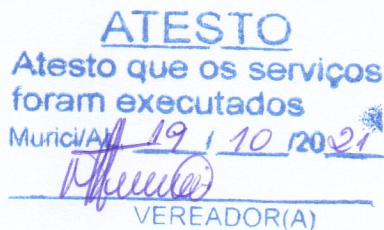 ATESTO
Atesto que os serviços
foram executados
Murici/AL 19 / 10 /2021
VEREADOR(A)